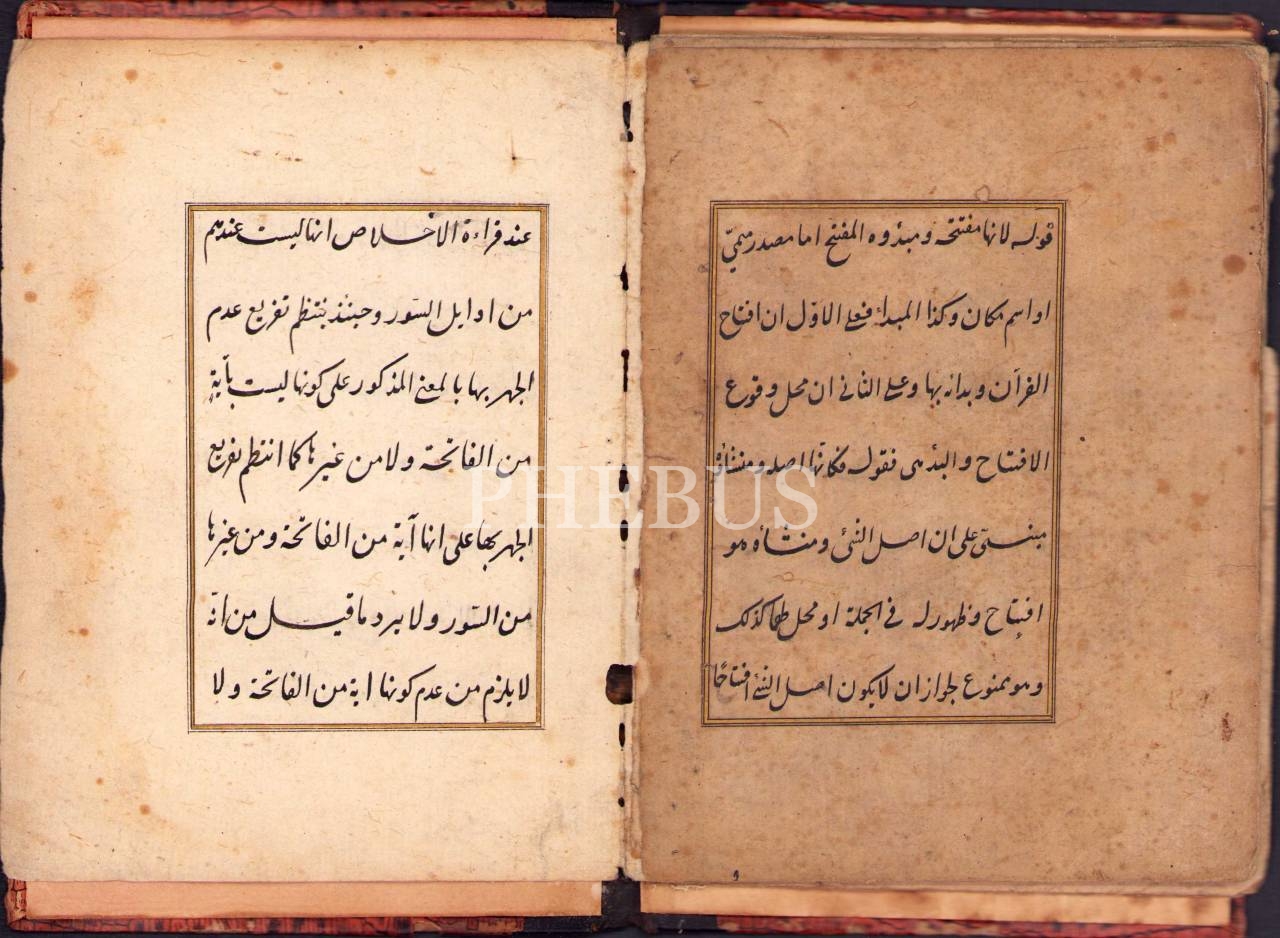 قوله لانها مفتتحه ومبدؤه المفتتح اما مصدر ميميّ
او اسم مكان وكذا المبدأ فعلى الاوّل ان افتتاح
القرآن وبدائه بها وعلى الثانى ان محل وقوع
الافتتاح والبدء هى فقوله فكانها اصله ومنشاؤه
على ان اصل الشئ ومنشأه هو
افتتاح وظهور له فى الجملة او محل لهما كذلك
وهو ممنوع لجواز ان لا يكون اصل الشئ افتتاحًا
عند قراءة الاخلاص انها ليست عندهم
من اوايل السّور وحينئذ ينتظم تفريع عدم
الجهر بها بالمعنى المذكور على كونها ليست بآية
من الفاتحة ولا من غيرها كما انتظم تفريع
الجهر بها على انها آية من الفاتحة ومن غيرها
من السّور ولا يرد ما قيل من انّه
لا يلزم من عدم كونها اية من الفاتحة ولا
PHEBUS